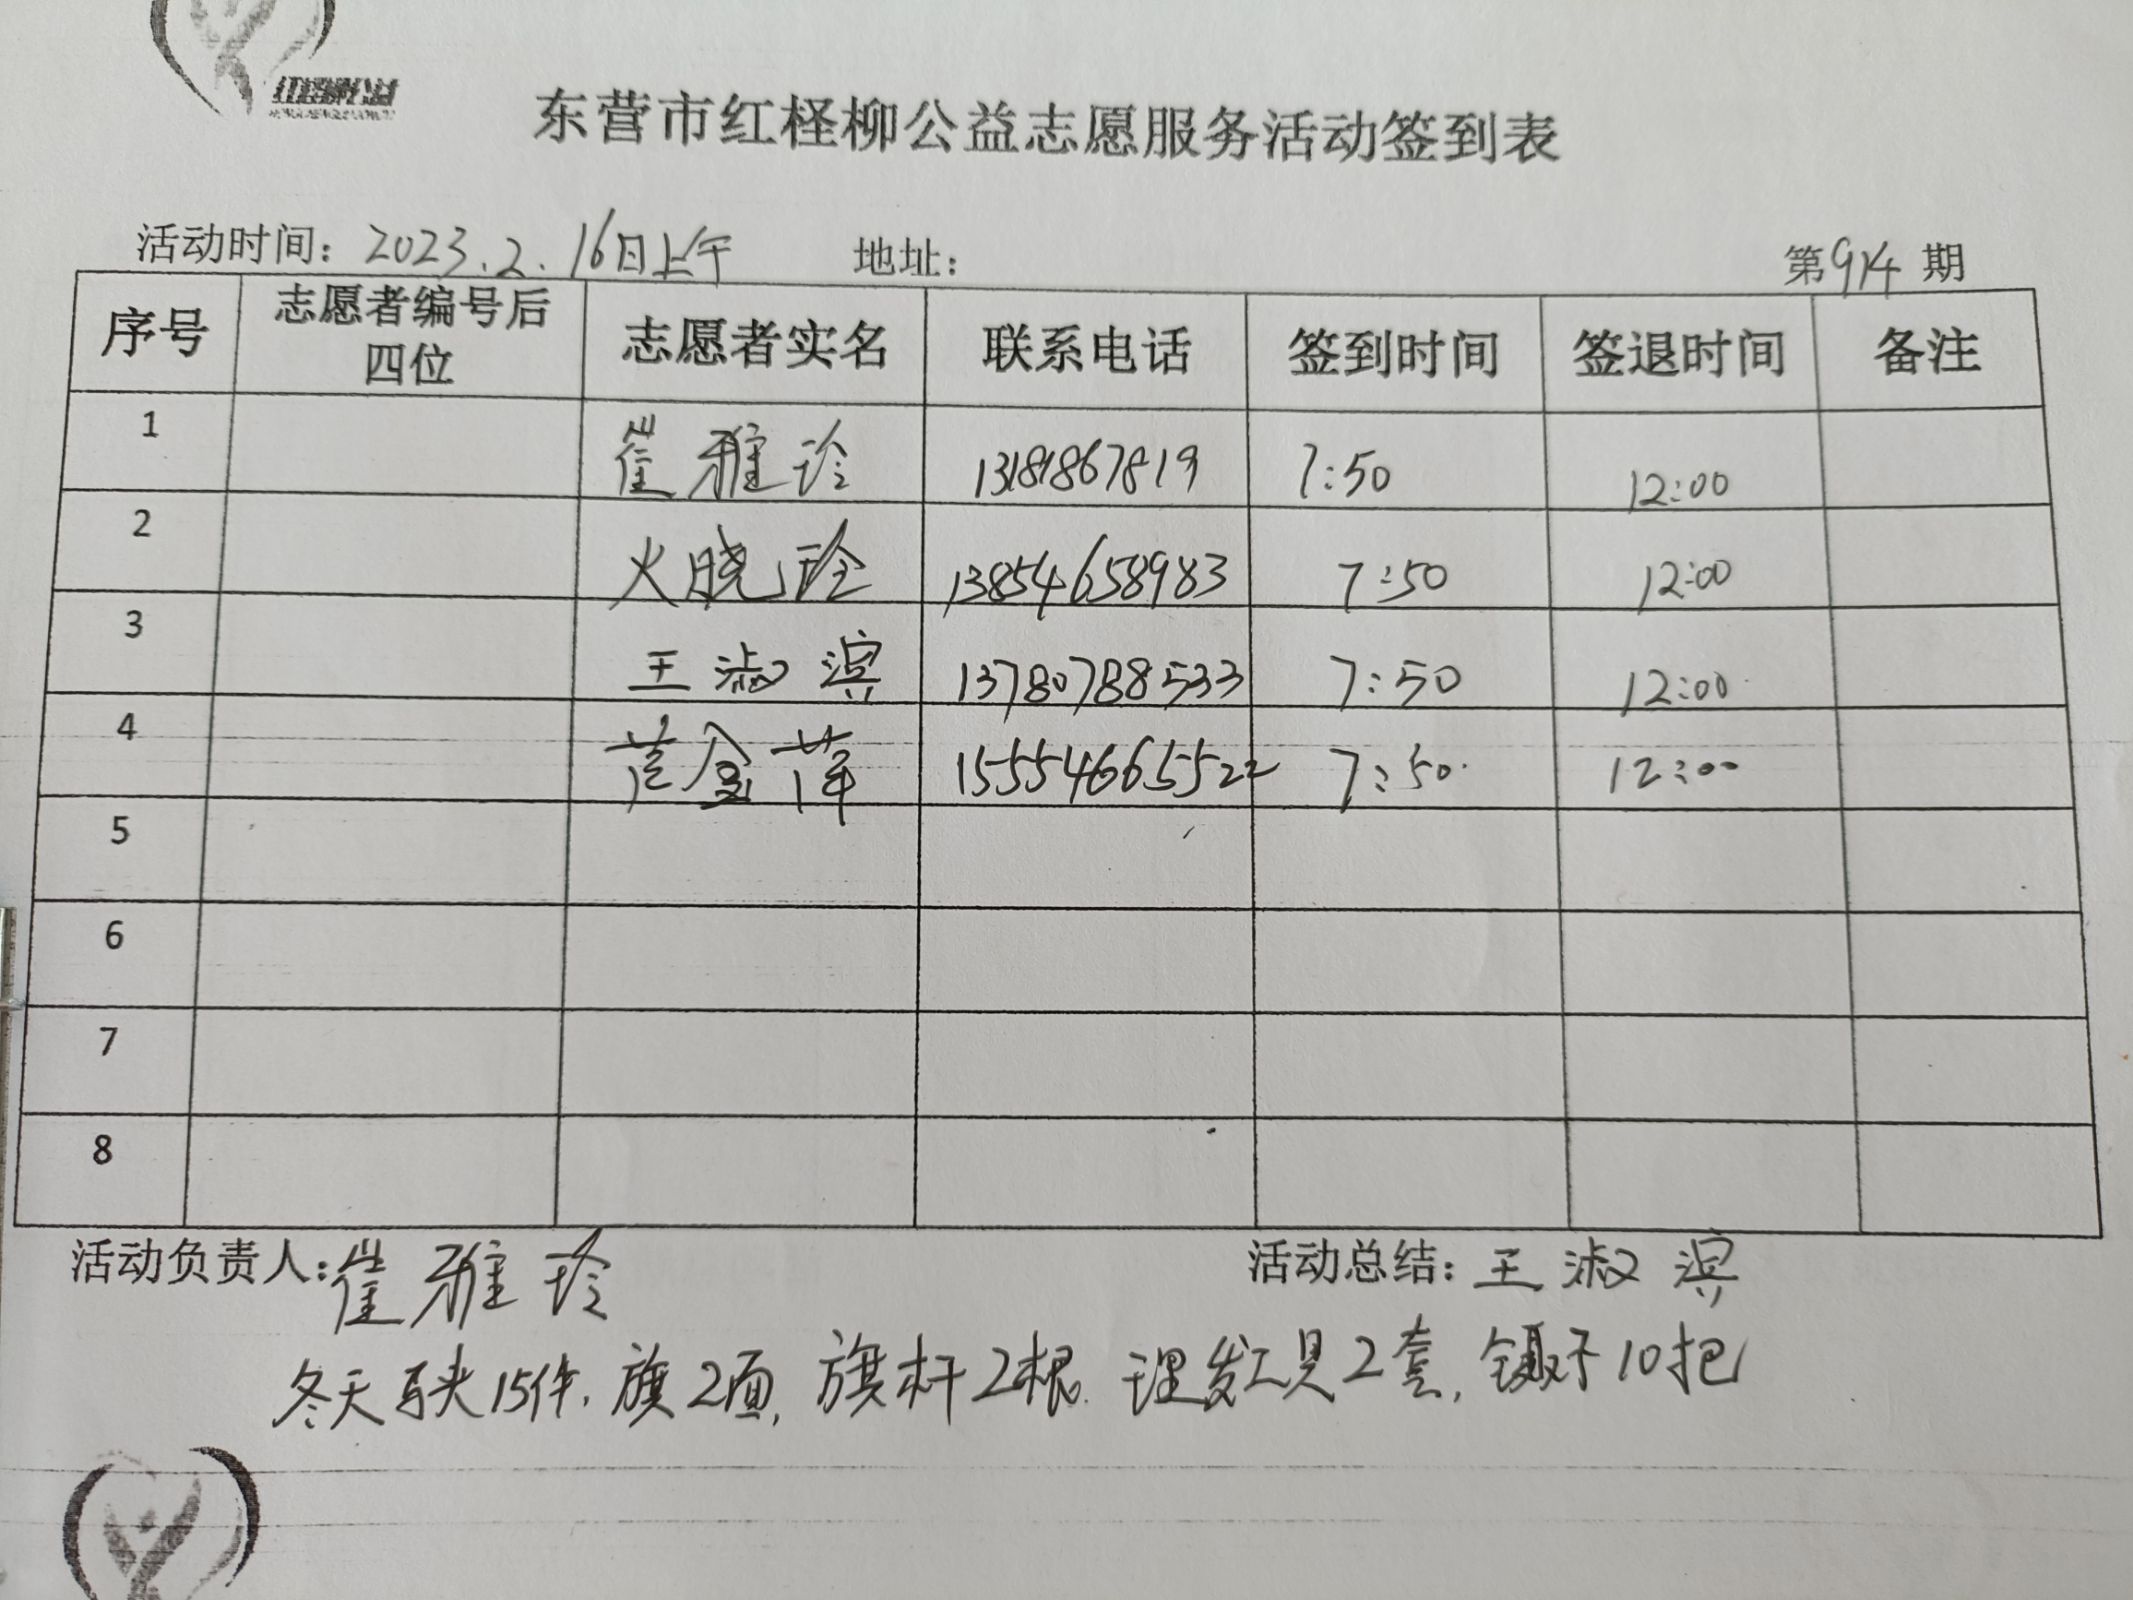 红柽柳公益
东营市红柽柳公益志愿服务活动签到表
活动时间：2023.2.16日上午 地址： 第914期
序号 志愿者编号后四位 志愿者实名 联系电话 签到时间 签退时间 备注
1 崔雅玲 13181867819 7:50 12:00
2 火晓玲 13854658983 7:50 12:00
3 王淑滨 13780788533 7:50 12:00
4 范金萍 15554665522 7:50 12:00
5
6
7
8
活动负责人：崔雅玲 活动总结：王淑滨
冬天马夹15件，旗2面，旗杆2根，理发工具2套，镊子10把